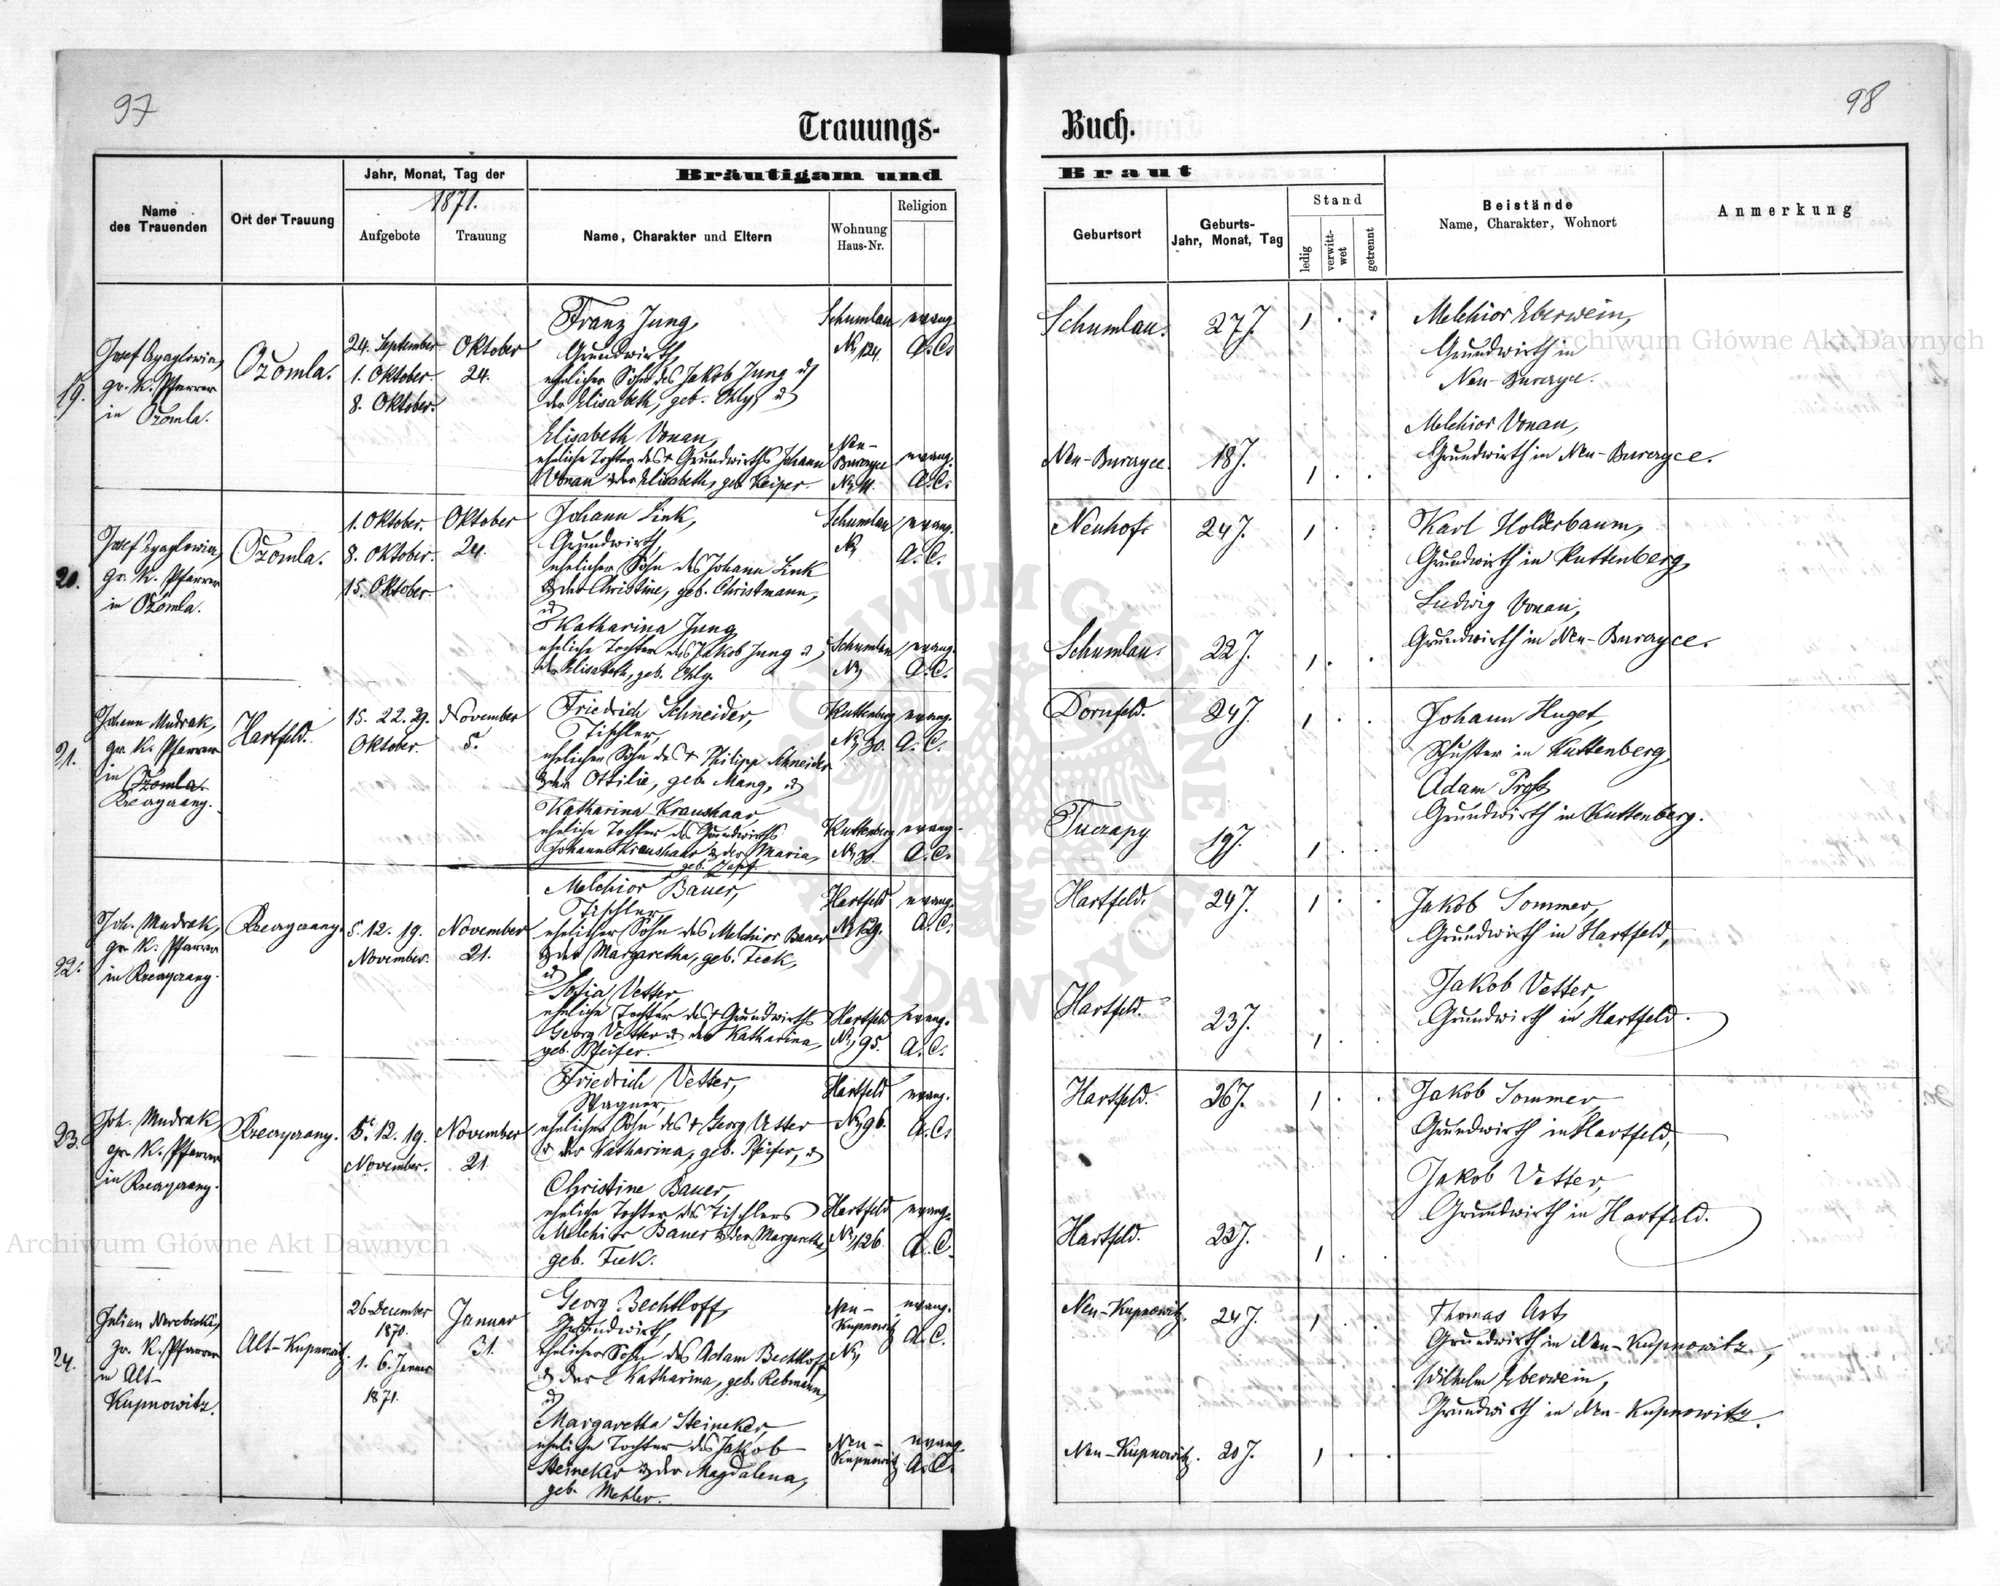 97
98
Trauungs-
Buch.
Jahr, Monat, Tag der
1871.
Bräutigam und
Braut
Name
des Trauenden
Ort der Trauung
Aufgebote
Trauung
Name, Charakter und Eltern
Wohnung
Haus-Nr.
Religion
Geburtsort
Geburts-
Jahr, Monat, Tag
Stand
ledig
verwitt-
wet
getrennt
Beistände
Name, Charakter, Wohnort
Anmerkung
19.
Josef
gr. K. Pfarrer
in Ożomla.
Ożomla.
24. September
1. Oktober.
8. Oktober.
Oktober
24.
Franz Jung,
Grundwirth,
ehelicher Sohn des Jakob Jung u
der Elisabeth, geb. Ohly, u
Schumlau
No 124.
evang.
A. C.
Schumlau.
27 J.
1
Melchior Eberwein,
Grundwirth in
Neu-Burczyce.
Elisabeth Vonau,
eheliche Tochter des + Grundwirths Johann
Vonau u der Elisabeth, geb. Keiper.
Neu-
Burczyce
No 11.
evang.
A. C.
Neu-Burczyce.
18 J.
1
Melchior Vonau,
Grundwirth in Neu-Burczyce.
20.
Josef
gr. K. Pfarrer
in Ożomla.
Ożomla.
1. Oktober.
8. Oktober.
15. Oktober
Oktober
24.
Johann Link,
Grundwirth,
ehelicher Sohn des Johann Link
u der Christine, geb. Christmann,
u
Schumlau
No
evang.
A. C.
Neuhof.
24 J.
1
Karl Holderbaum,
Grundwirth in Kuttenberg,
Katharina Jung,
eheliche Tochter des Jakob Jung u
der Elisabeth, geb. Ohly.
Schumlau
No
evang.
A. C.
Schumlau.
22 J.
1
Ludwig Vonau,
Grundwirth in Neu-Burczyce.
21.
Johann Mudrak,
gr. K. Pfarrer
in Ożomla.
Hartfeld.
15. 22. 29.
Oktober.
November
5.
Friedrich Schneider,
Tischler,
ehelicher Sohn des + Philipp Schneider
u der Ottilie, geb. Mang, u
Kuttenberg
No 30.
evang.
A. C.
Dornfeld.
24 J.
1
Johann Huget,
Schuster in Kuttenberg,
Katharina Kraushaar,
eheliche Tochter des Grundwirths
Johann Kraushaar u der Maria,
geb.
Kuttenberg
No 30.
evang.
A. C.
Tuczapy
19 J.
1
Adam Proß,
Grundwirth in Kuttenberg.
22.
Joh. Mudrak,
gr. K. Pfarrer
in
5. 12. 19.
November.
November
21.
Melchior Bauer,
Tischler,
ehelicher Sohn des Melchior Bauer
u der Margaretha, geb. Fick,
u
Hartfeld
No 129.
evang.
A. C.
Hartfeld.
24 J.
1
Jakob Sommer,
Grundwirth in Hartfeld,
Sofia Vetter,
eheliche Tochter des + Grundwirths
Georg Vetter u der Katharina,
geb. Pfeifer.
Hartfeld
No 95.
evang.
A. C.
Hartfeld.
23 J.
1
Jakob Vetter,
Grundwirth in Hartfeld.
23.
Joh. Mudrak,
gr. K. Pfarrer
in
5. 12. 19.
November.
November
21.
Friedrich Vetter,
Wagner,
ehelicher Sohn des + Georg Vetter
u der Katharina, geb. Pfeifer, u
Hartfeld
No 96.
evang.
A. C.
Hartfeld.
26 J.
1
Jakob Sommer,
Grundwirth in Hartfeld,
Christine Bauer,
eheliche Tochter des Tischlers
Melchior Bauer u der Margaretha,
geb. Fick.
Hartfeld
No 126.
evang.
A. C.
Hartfeld.
22 J.
1
Jakob Vetter,
Grundwirth in Hartfeld.
24.
Julian
gr. K. Pfarrer
in Alt-
Kupnowitz.
Alt-Kupnowitz.
26. December
1870.
1. 6. Januar
1871.
Januar
31.
Georg Bechtloff,
Grundwirth,
ehelicher Sohn des Adam Bechtloff
u der Katharina, geb. Rebmann,
u
Neu-
Kupnowitz
No
evang.
A. C.
Neu-Kupnowitz.
24 J.
1
Thomas Ast,
Grundwirth in Neu-Kupnowitz,
Wilhelm Eberwein,
Grundwirth in Neu-Kupnowitz.
Margaretha Steineker,
eheliche Tochter des Jakob
Steineker u der Magdalena,
geb. Mehler.
Neu-
Kupnowitz
evang.
A. C.
Neu-Kupnowitz.
20 J.
1
Archiwum Główne Akt Dawnych
Archiwum Główne Akt Dawnych
ARCHIWUM GŁÓWNE AKT DAWNYCH